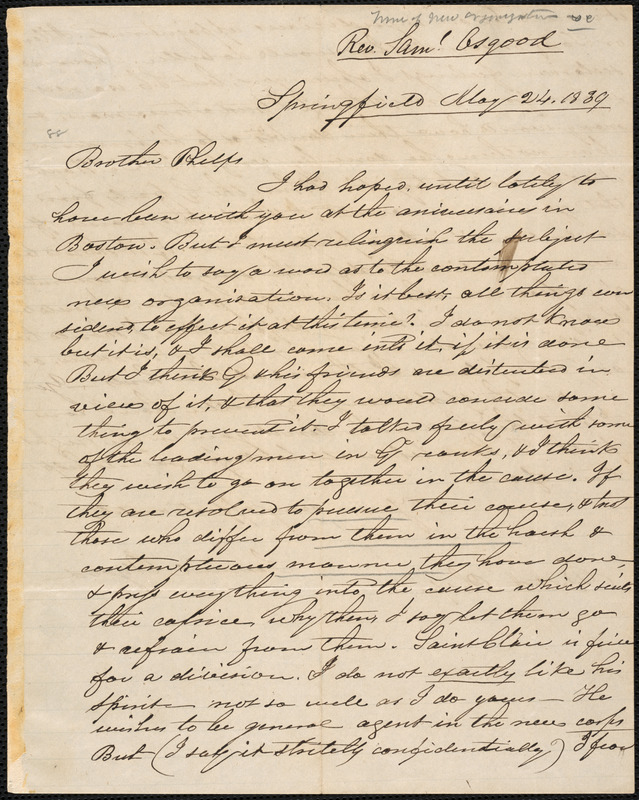 Time of New Organization
Rev. Saml. Osgood
Springfield May 24. 1839
Brother Phelps
I had hoped, until lately to
have been with you at the aniversaries in
Boston. But I must relinquish the subject
I wish to say a word as to the contemplated
new organisation. Is it best, all things con
sidered, to effect it at this time? I do not know
but it is, & I shall come into it, if it is done
But I think G & his friends are disturbed in
view of it, & that they would concede some
thing to prevent it. I talked freely with some
of the leading men in G ranks, & I think
they wish to go on together in the cause. If
they are resolved to pursue their course, & treat
those who differ from them in the harsh &
contemptuous manner they have done,
& press everything into the cause which suits
their caprice, why then, I say let them go
& refrain from them. Saint Clair is fierce
for a division. I do not exactly like his
spirit - not so well as I do yours - He
wishes to be general agent in the new corps
But (I say it stritely confidentially) I fear